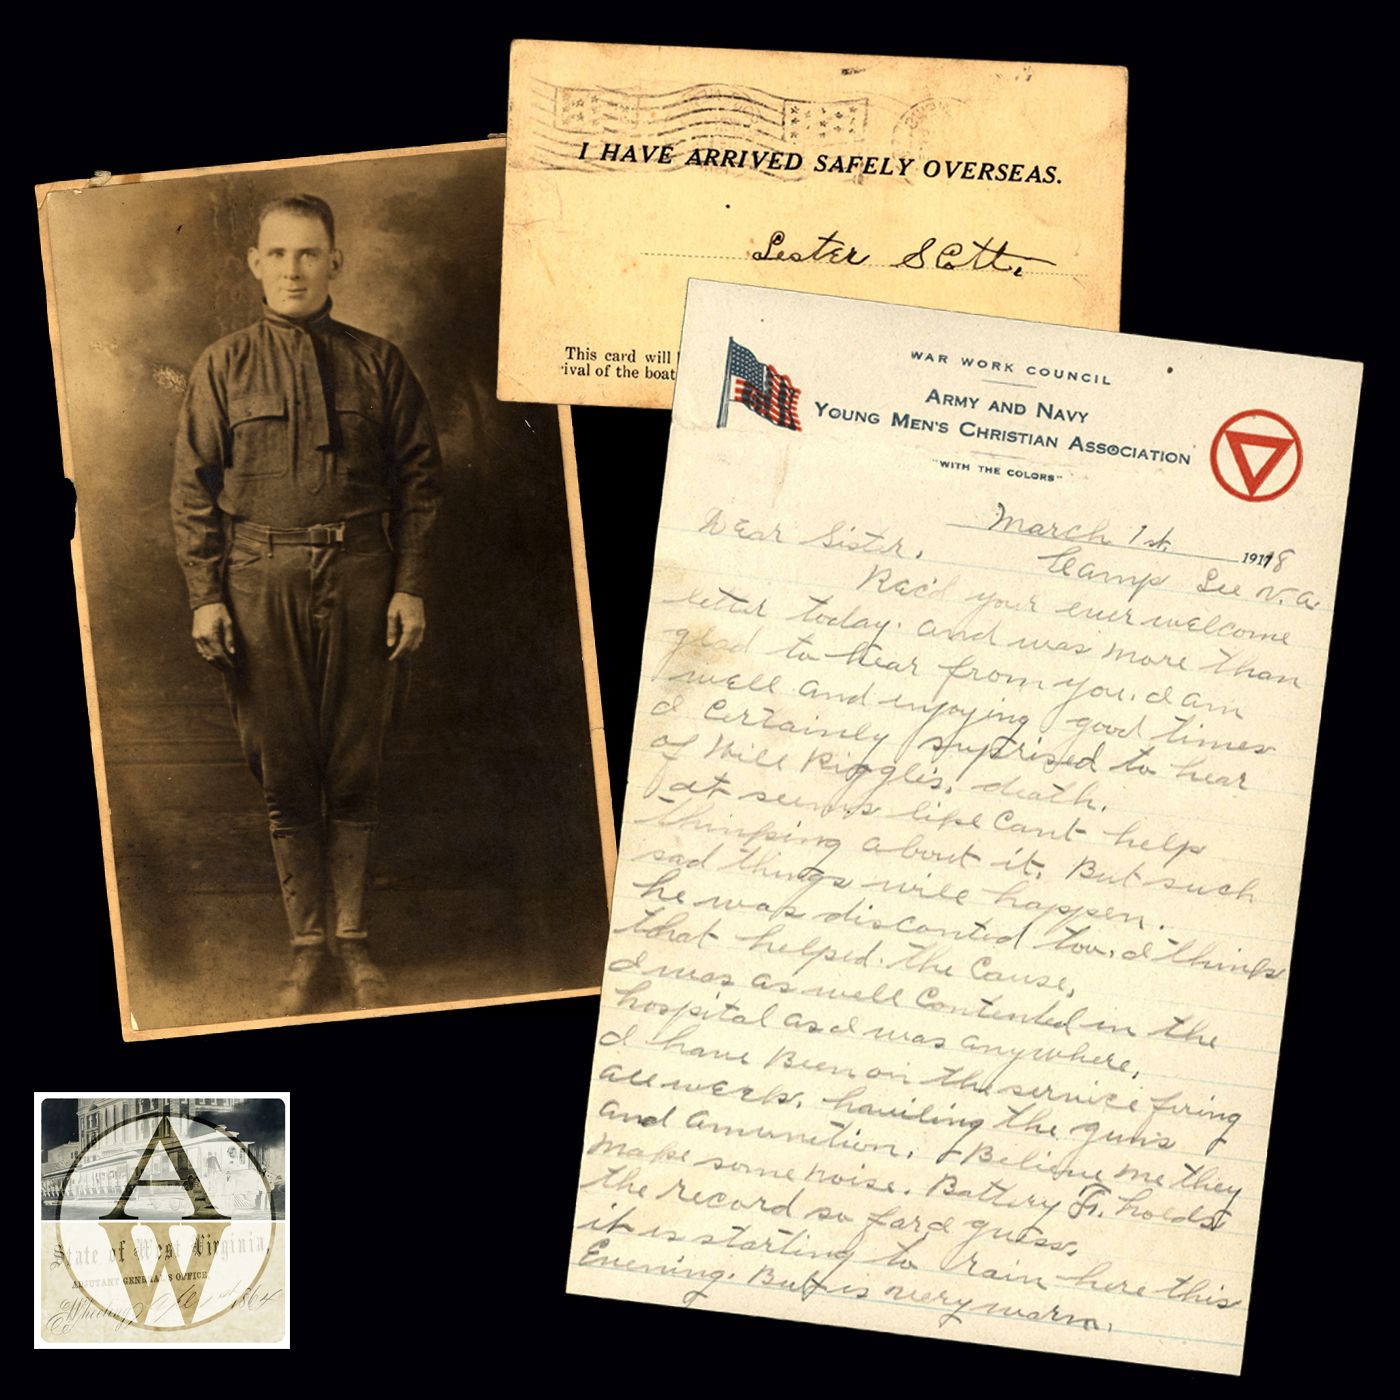 I HAVE ARRIVED SAFELY OVERSEAS.
Lester Scott.
This card will
ival of the boat
WAR WORK COUNCIL
ARMY AND NAVY
YOUNG MEN'S CHRISTIAN ASSOCIATION
"WITH THE COLORS"
March 1st, 1918
Dear Sister, Camp Lee V.a.
Rec'd your ever welcome
letter today. and was more than
glad to hear from you. I am
well and enjoying good times
I certainly suprised to hear
of Will Riggle's, death.
at seems like Cant help
thinking about it. But such
sad things will happen.
he was disconted too. I think
that helped. the Cause,
I was as well Contented in the
hospital as I was anywhere,
I have Been on the service firing
all week. hauling the guns
and amunition. + Believe me they
make some noise. Battery F. holds
the record so far I guess.
it is starting to rain here this
Evening. But is very warm.
A
W
State of West Virginia,
ADJUTANT GENERAL'S OFFICE,
Wheeling, 1864